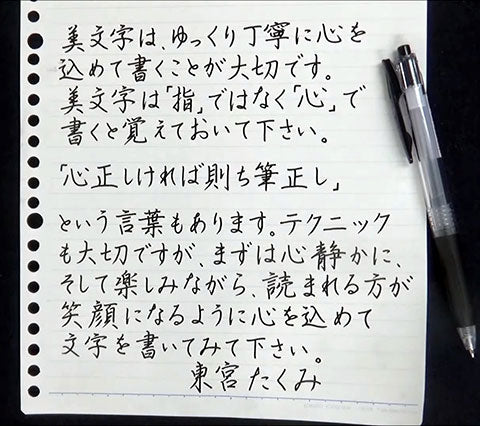 美文字は、ゆっくり丁寧に心を
込めて書くことが大切です。
美文字は「指」ではなく「心」で
書くと覚えておいて下さい。
「心正しければ則ち筆正し」
という言葉もあります。テクニック
も大切ですが、まずは心静かに、
そして楽しみながら、読まれる方が
笑顔になるように心を込めて
文字を書いてみて下さい。
東宮たくみ